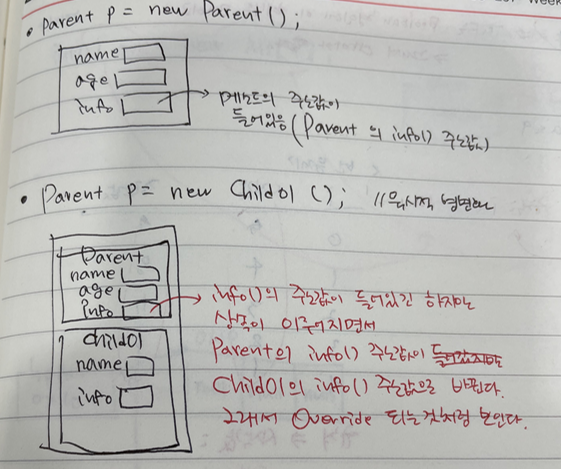 • Parent p = new Parent();
name
age
info → 메소드의 주소값이
들어있음 (Parent 의 info() 주소값)
• Parent p = new Child01 (); // 묵시적 형변환
Parent
name
age
info → info()의 주소값이 들어있긴 하지만
상속이 이루어지면서
Child01
Parent의 info() 주소값이
name
Child01의 info() 주소값으로 바뀐다.
info
그래서 Override 되는것처럼 보인다.